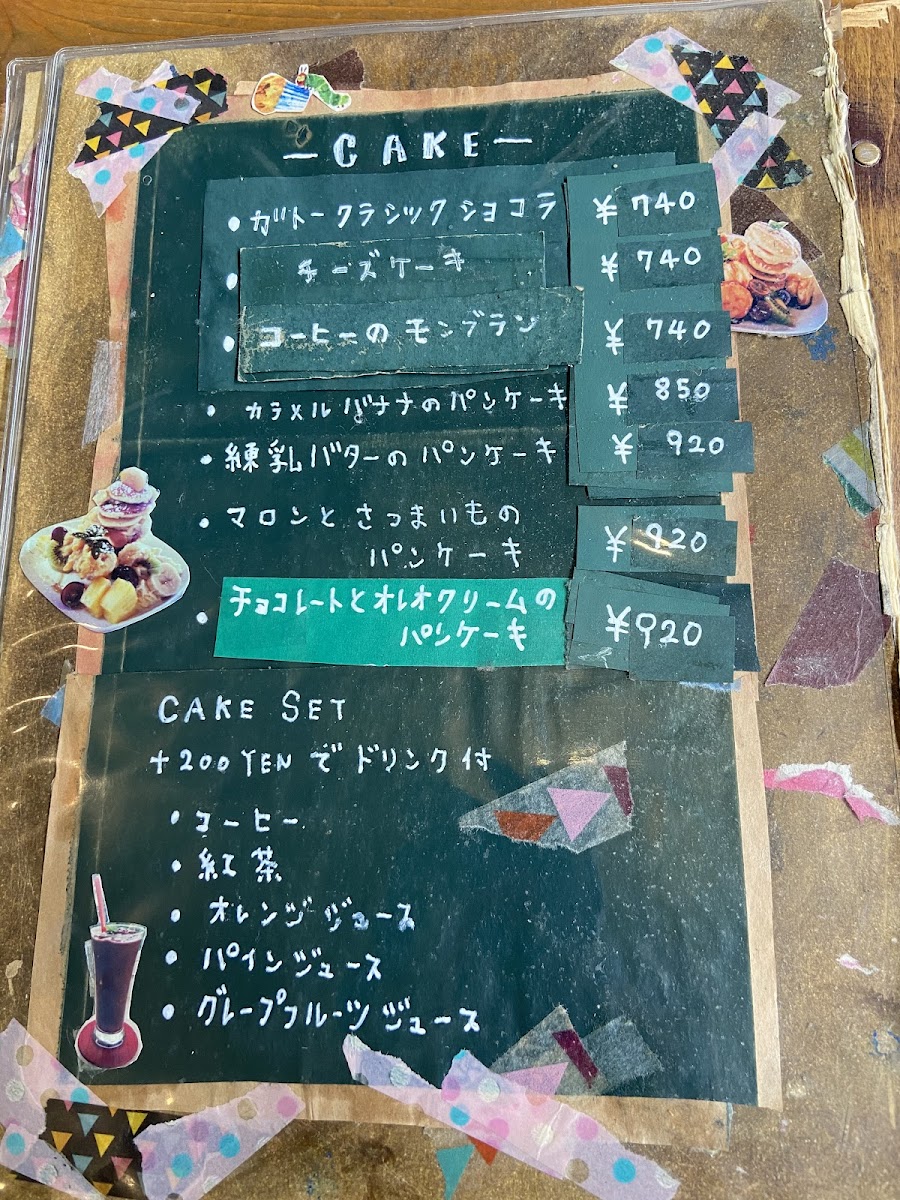 －CAKE－
・ガトークラシックショコラ ¥740
・チーズケーキ ¥740
・コーヒーのモンブラン ¥740
・カラメルバナナのパンケーキ ¥850
・練乳バターのパンケーキ ¥920
・マロンとさつまいもの
パンケーキ ¥920
・チョコレートとオレオクリームの
パンケーキ ¥920
CAKE SET
+200YENでドリンク付
・コーヒー
・紅茶
・オレンジジュース
・パインジュース
・グレープフルーツジュース